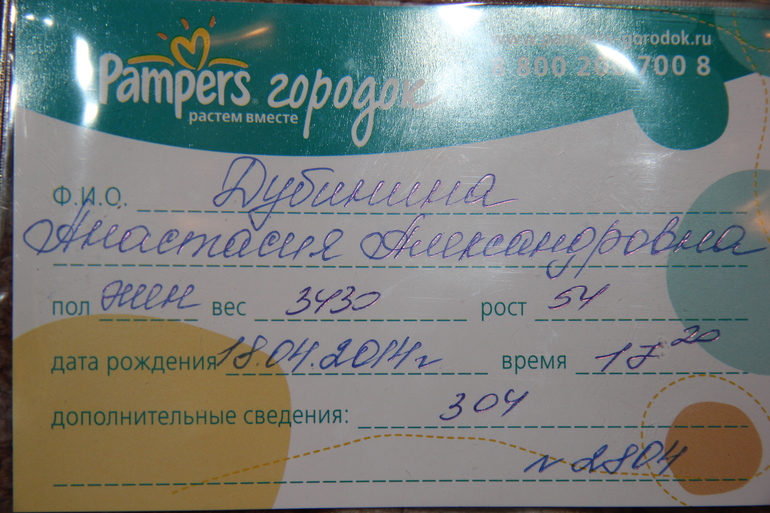 www.pampers-gorodok.ru
8 800 200 700 8
Pampers городок
растем вместе
Ф.И.О. Дубинина
Анастасия Александровна
пол жен вес 3430 рост 54
дата рождения 18.04.2014г время 17 20
дополнительные сведения: 304
№ 2804